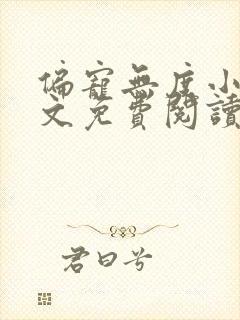 偏寵無度小
文免費閱讀
君曰兮